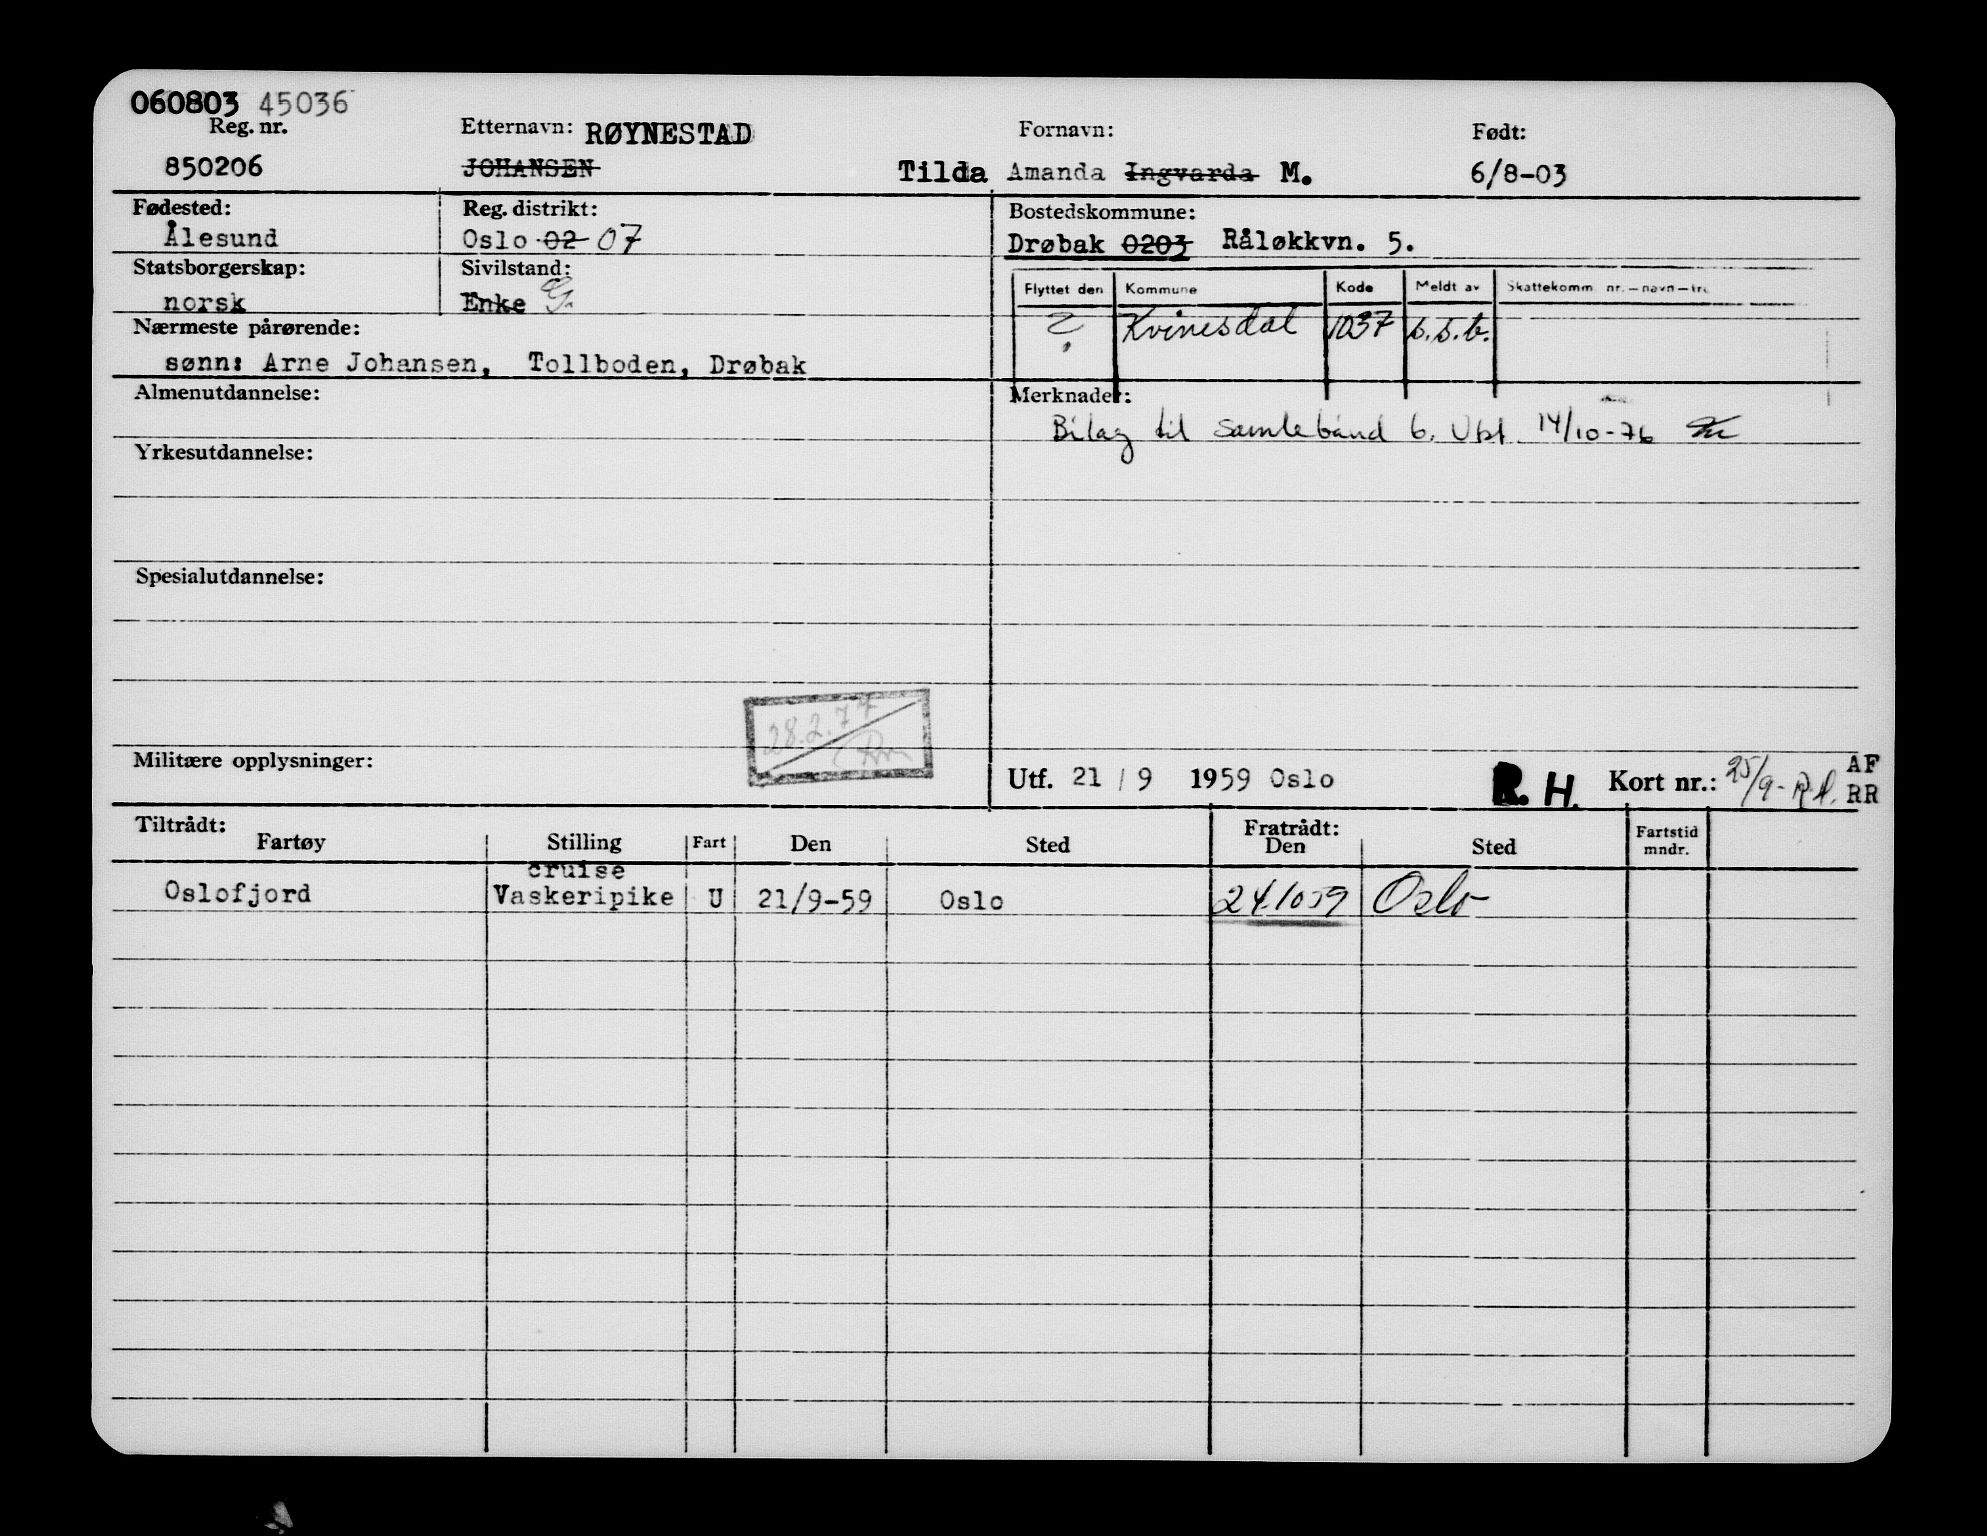 060803 45036
Reg. nr. Etternavn: RØYNESTAD Fornavn: Født:
850206 JOHANSEN Tilda Amanda Ingvarda M. 6/8-03
Fødested: Reg. distrikt: Bostedskommune:
Ålesund Oslo 02 07 Drøbak 0203 Råløkkvn. 5.
Statsborgerskap: Sivilstand:
norsk Enke G.
Flyttet den Kommune Kode Meldt av Skattekomm nr.—navn—tr.
? Kvinesdal 1037 s.s.b.
Nærmeste pårørende:
sønn: Arne Johansen, Tollboden, Drøbak
Almenutdannelse: Merknader:
Bilag til samlebånd 6. Ubt 14/10-76
Yrkesutdannelse:
Spesialutdannelse:
28.2.77
Militære opplysninger:
Utf. 21 / 9 1959 Oslo R. H. Kort nr.: 25/9- R.H. AF
RR
Tiltrådt: Fratrådt:
Fartøy Stilling Fart Den Sted Den Sted Fartstid
mndr.
cruise
Oslofjord Vaskeripike U 21/9-59 Oslo 24.10 59 Oslo